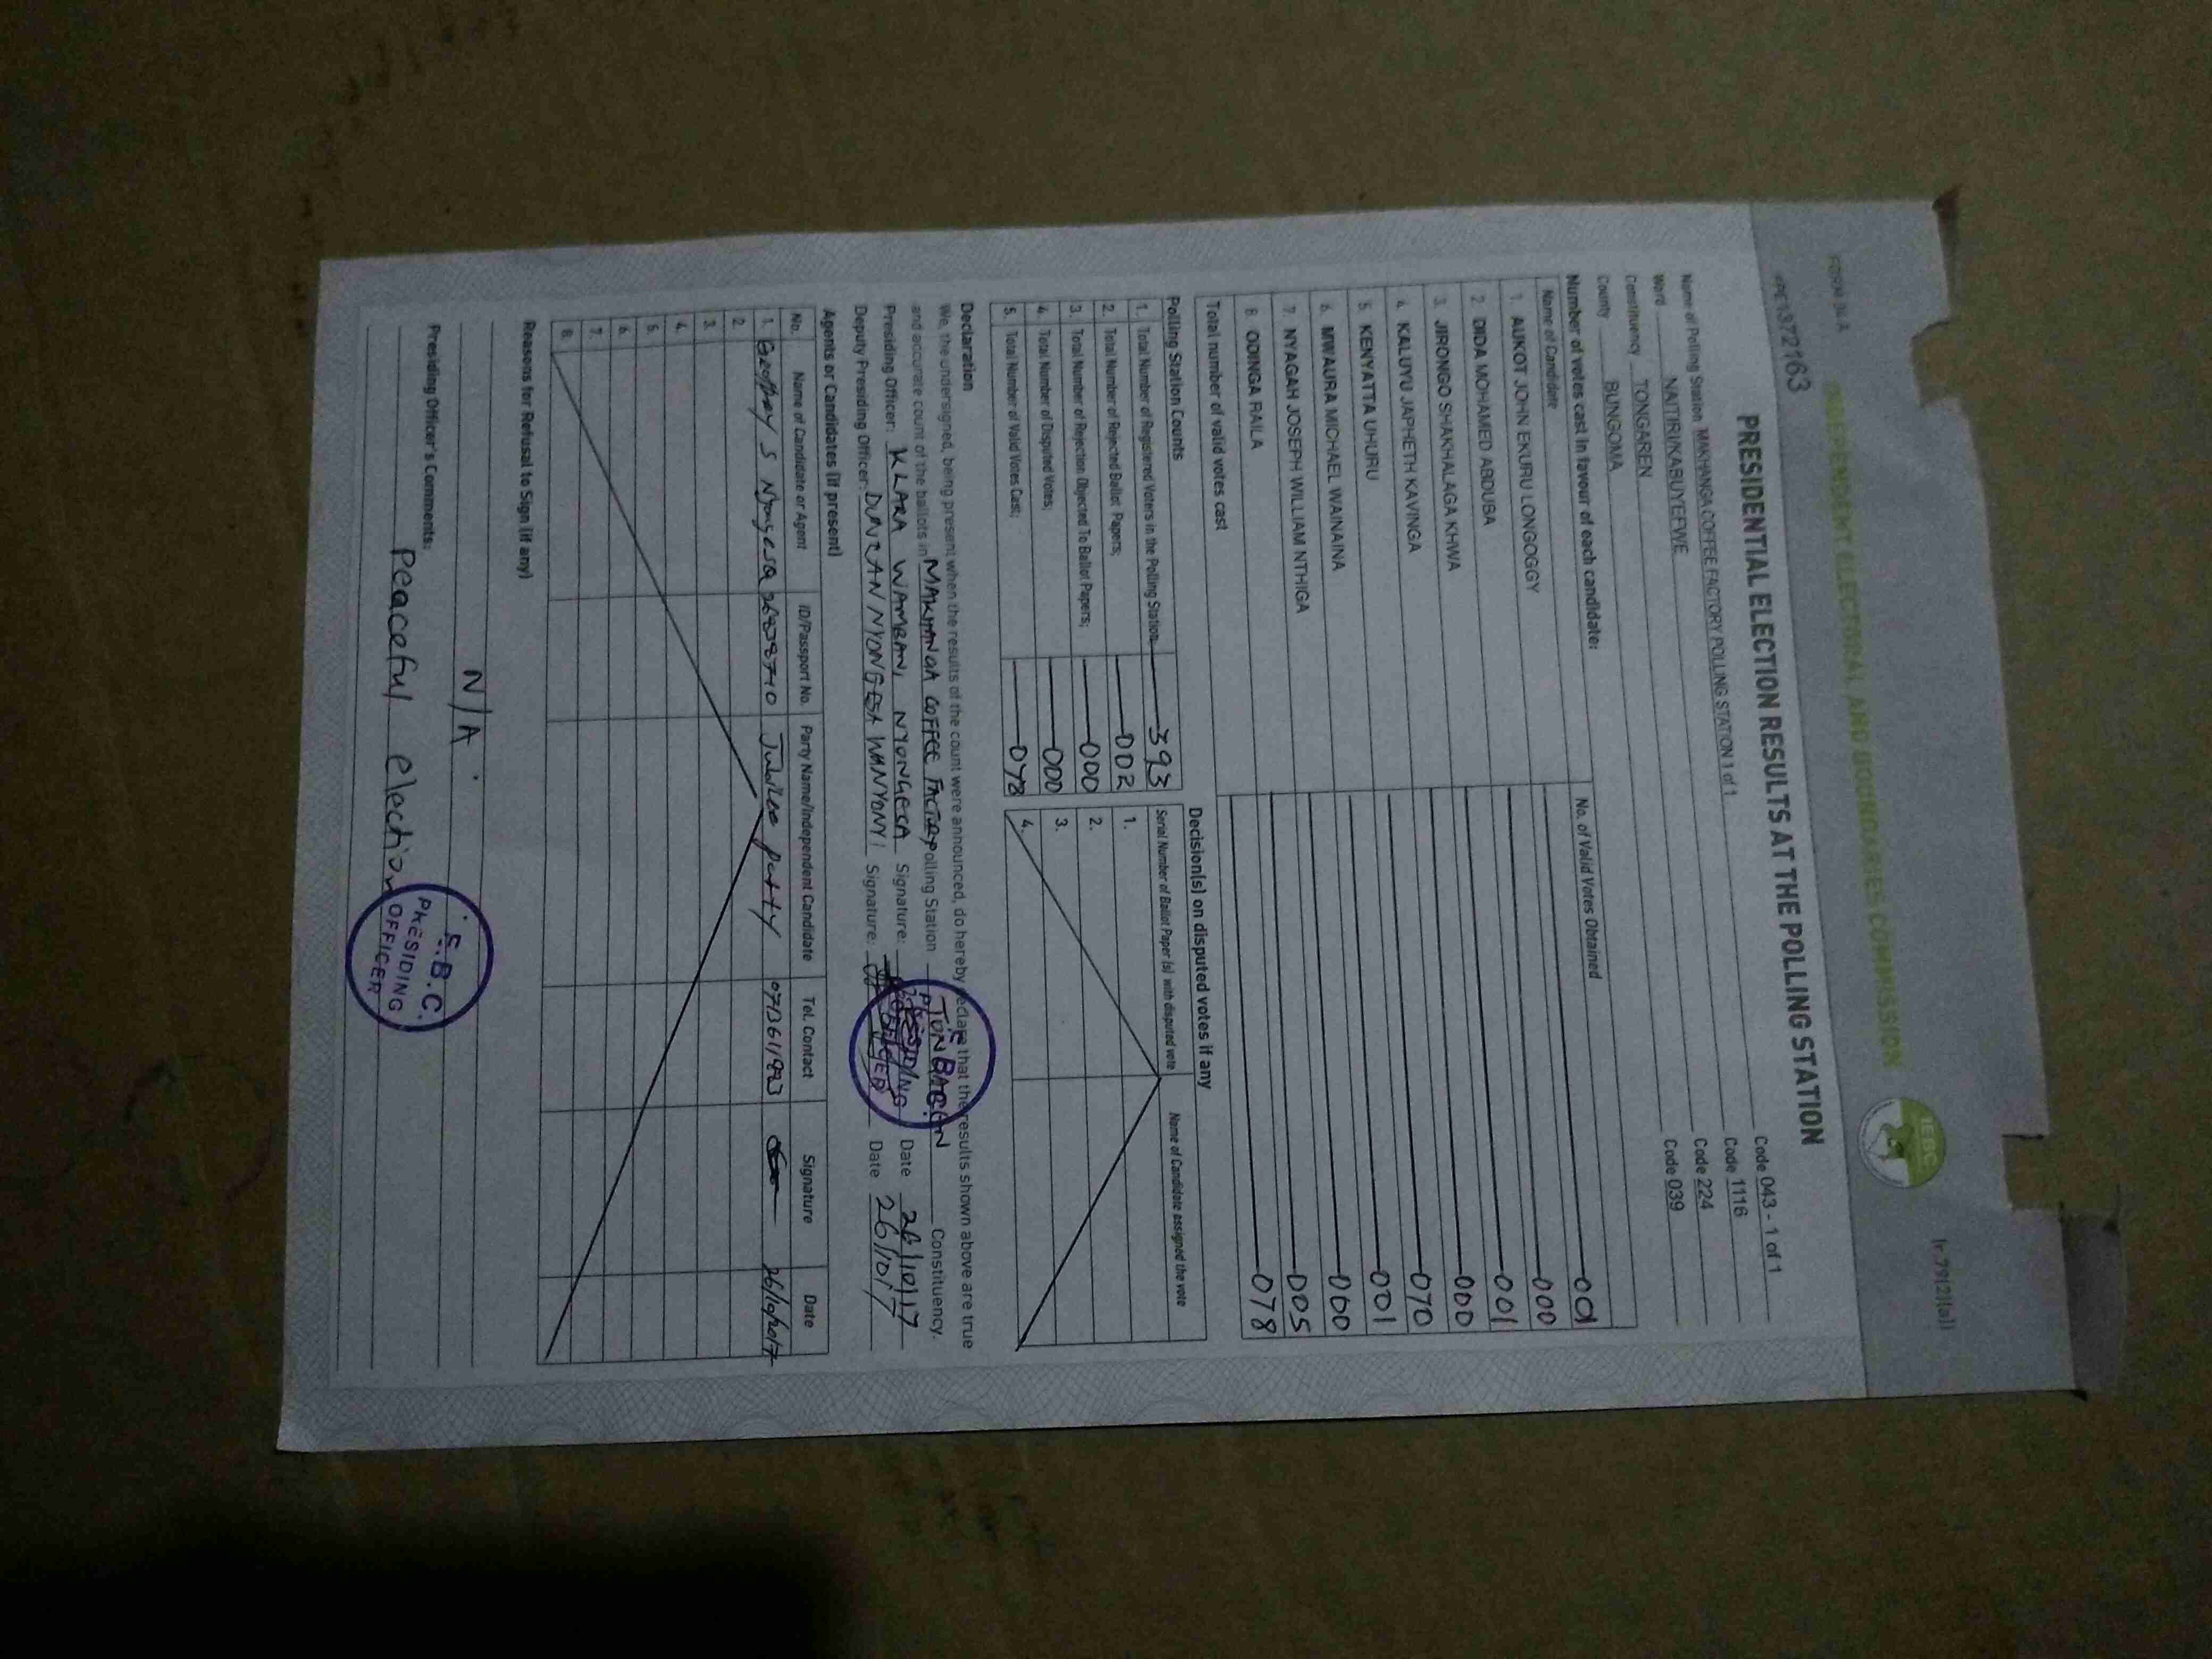 FORM 34 A
INDEPENDENT ELECTORAL AND BOUNDARIES COMMISSION
IEBC
(r.79(2)(a))
1372163
PRESIDENTIAL ELECTION RESULTS AT THE POLLING STATION
Name of Polling Station MAKHANGA COFFEE FACTORY POLLING STATION 1 of 1 Code 043 - 1 of 1
Ward NAITIRI/KABUYEFWE Code 1116
Constituency TONGAREN Code 224
County BUNGOMA Code 039
Number of votes cast in favour of each candidate:
Name of Candidate No. of Valid Votes Obtained
1. AUKOT JOHN EKURU LONGOGGY 001
2. DIDA MOHAMED ABDUBA 000
3. JIRONGO SHAKHALAGA KHWA 001
4. KALUYU JAPHETH KAVINGA 000
5. KENYATTA UHURU 070
6. MWAURA MICHAEL WAINAINA 001
7. NYAGAH JOSEPH WILLIAM NTHIGA 000
8. ODINGA RAILA 005
Total number of valid votes cast 078
Polling Station Counts
1. Total Number of Registered Voters in the Polling Station 393
2. Total Number of Rejected Ballot Papers; 002
3. Total Number of Rejection Objected To Ballot Papers; 000
4. Total Number of Disputed Votes; 000
5. Total Number of Valid Votes Cast; 078
Decision(s) on disputed votes if any
Serial Number of Ballot Paper (s) with disputed vote Name of Candidate assigned the vote
1.
2.
3.
4.
Declaration
We, the undersigned, being present when the results of the count were announced, do hereby declare that the results shown above are true
and accurate count of the ballots in MAKHANGA COFFEE FACTORY Polling Station TONGAREN Constituency.
Presiding Officer: KLARA WAMBANI NYONGESA Signature: Date 26/10/17
Deputy Presiding Officer: DUNCAN NYONGESA WANYONYI Signature: Date 26/10/17
PRESIDING
OFFICER
Agents or Candidates (if present)
No. Name of Candidate or Agent ID/Passport No. Party Name/Independent Candidate Tel. Contact Signature Date
1. Geoffrey S Nyongesa 26838740 Jubilee party 0713611993 26/10/2017
2.
3.
4.
5.
6.
7.
8.
Reasons for Refusal to Sign (if any)
N/A
Presiding Officer's Comments:
peaceful election
E.B.C.
PRESIDING
OFFICER